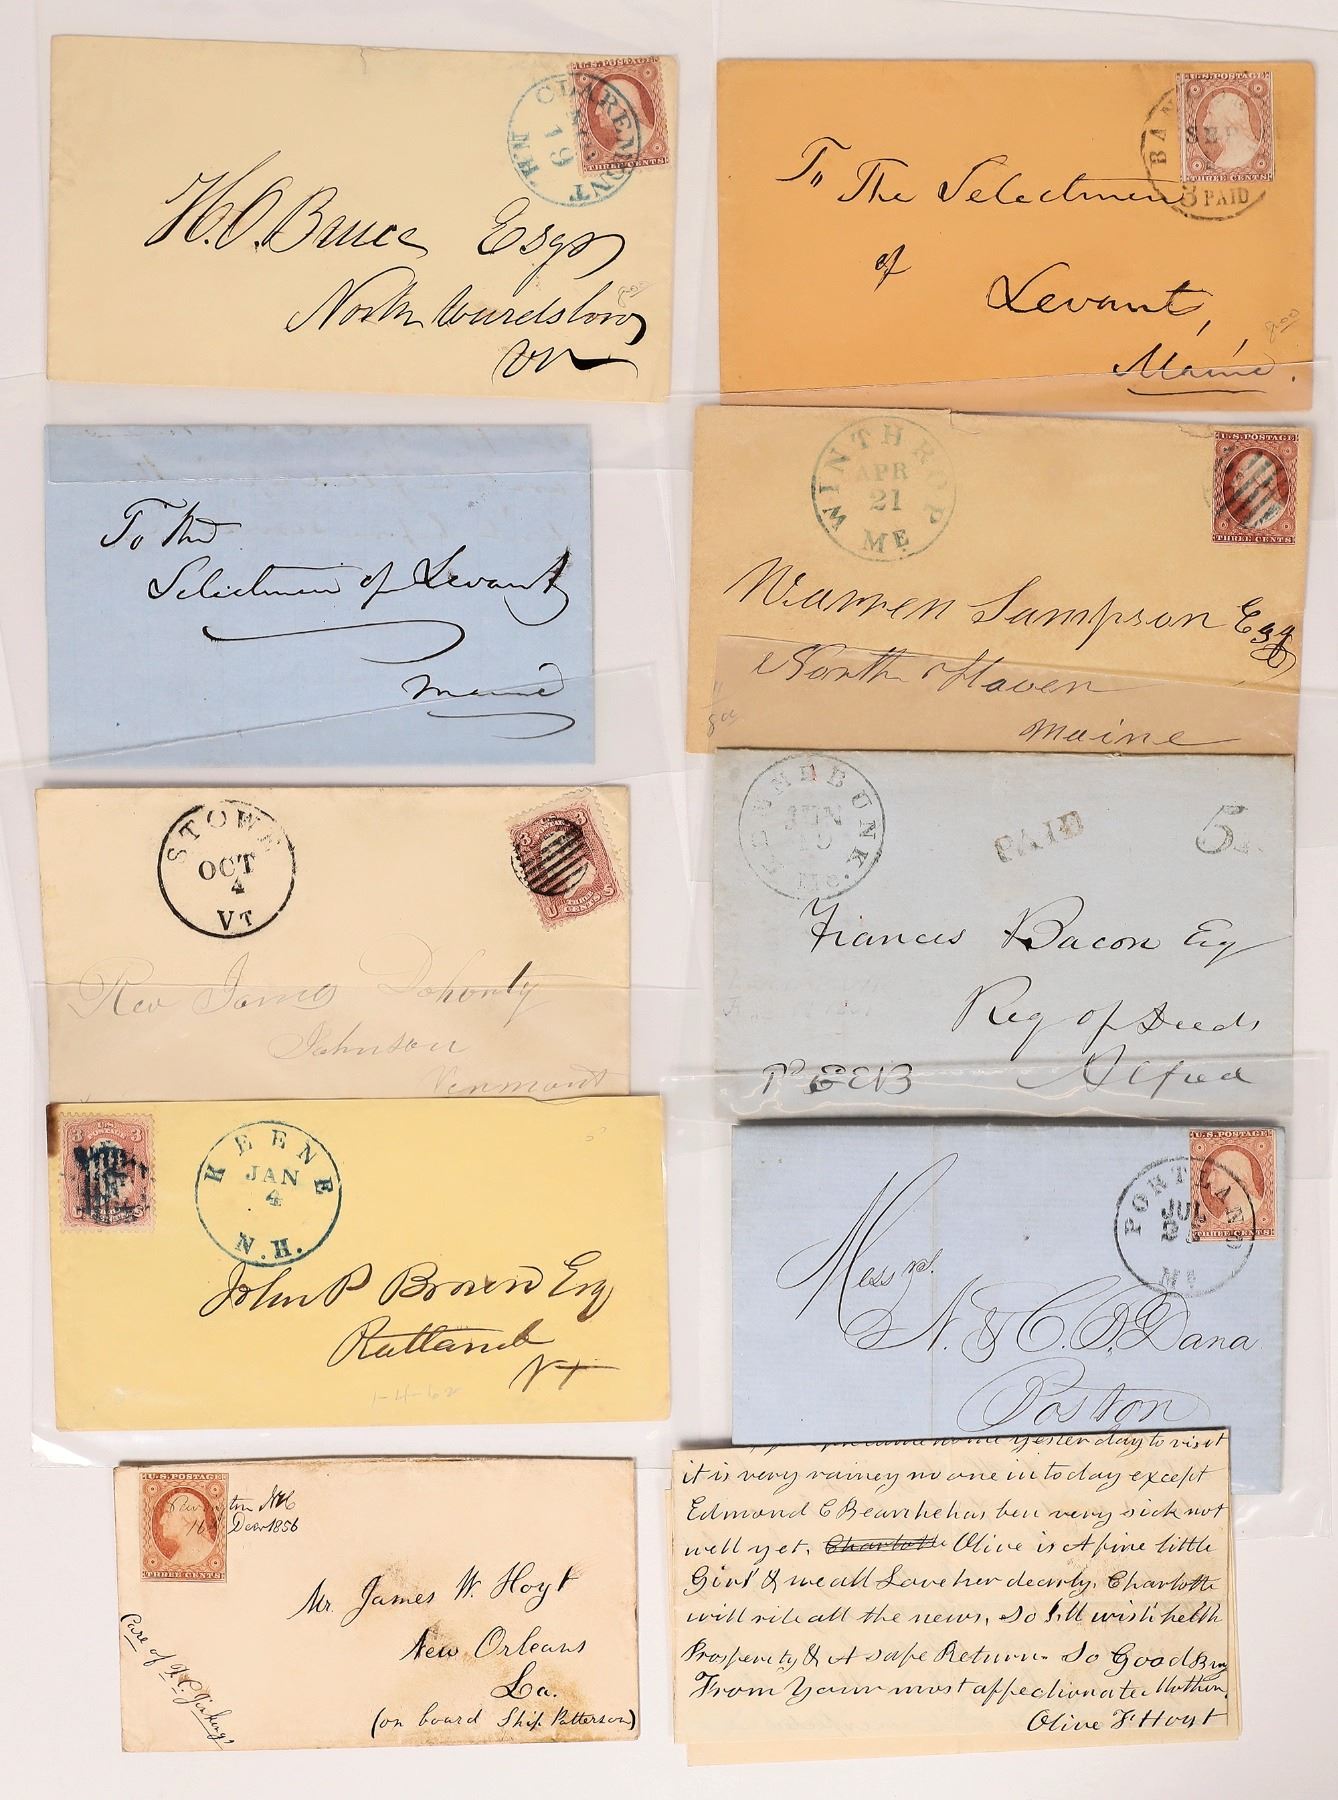 CLAREMONT
19
N.H
U.S. POSTAGE
THREE CENTS
H. O. Bruce Esqr
North Wardsboro
Vt
8.00
U.S. POSTAGE
BAN
SEP
3 PAID
THREE CENTS
To The Selectmen
of
Levant,
Maine.
8.00
To the
Selectmen of Levant
Maine
WINTHROP
APR
21
ME
U.S. POSTAGE
THREE CENTS
Warren Sampson Esq
North Haven
Maine
STOWE
OCT
4
VT
3 3
THREE
CENTS
U S
Rev James Doherty
Johnson
Vermont
KENNEBUNK
JUN
10
Me.
PAID
5
Frances Bacon Esq
Reg of Deeds
Alfred
Pd EEB
3 3
U.S.
POSTAGE
KEENE
JAN
4
N.H.
John P Brown Esq
Rutland
Vt
1-4-62
PORTLAND
JUL
ME
U.S. POSTAGE
THREE CENTS
Messrs.
N. & C. D. Dana
Boston
U.S. POSTAGE
THREE CENTS
16 Decr 1856
Mr James W. Hoyt
New Orleans
La.
(on board Ship Patterson)
Care of
yesterday to visit
it is very rainey no one in to day except
Edmond C Bearr he has ben very sick not
well yet. Charlotte Olive is A fine little
Girl & we all Love her dearly. Charlotte
will rite all the news. So I ll wish helth
Prosperity & A safe Return. So Good By
From Your most affectionate Mother,
Olive F Hoyt